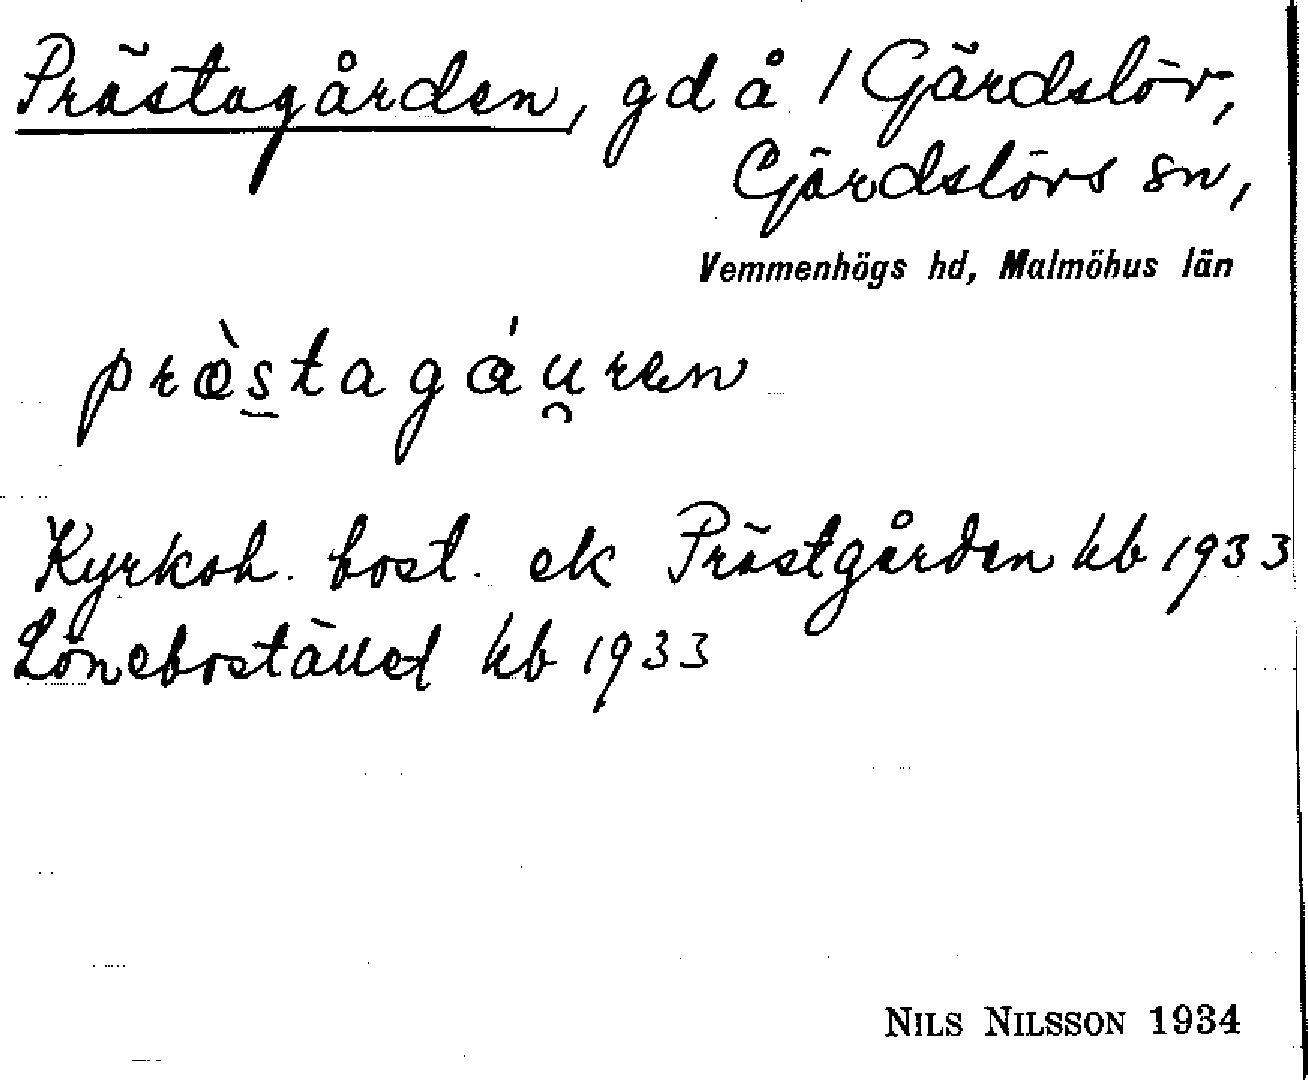 Prästagården, gd å 1 Gärdslöv,
Gärdslövs sn,
Vemmenhögs hd, Malmöhus län
præ̀s̲tagáu̯ren
Kyrkoh. bost. ek Prästgården kb 1933
Lönebostället kb 1933
NILS NILSSON 1934